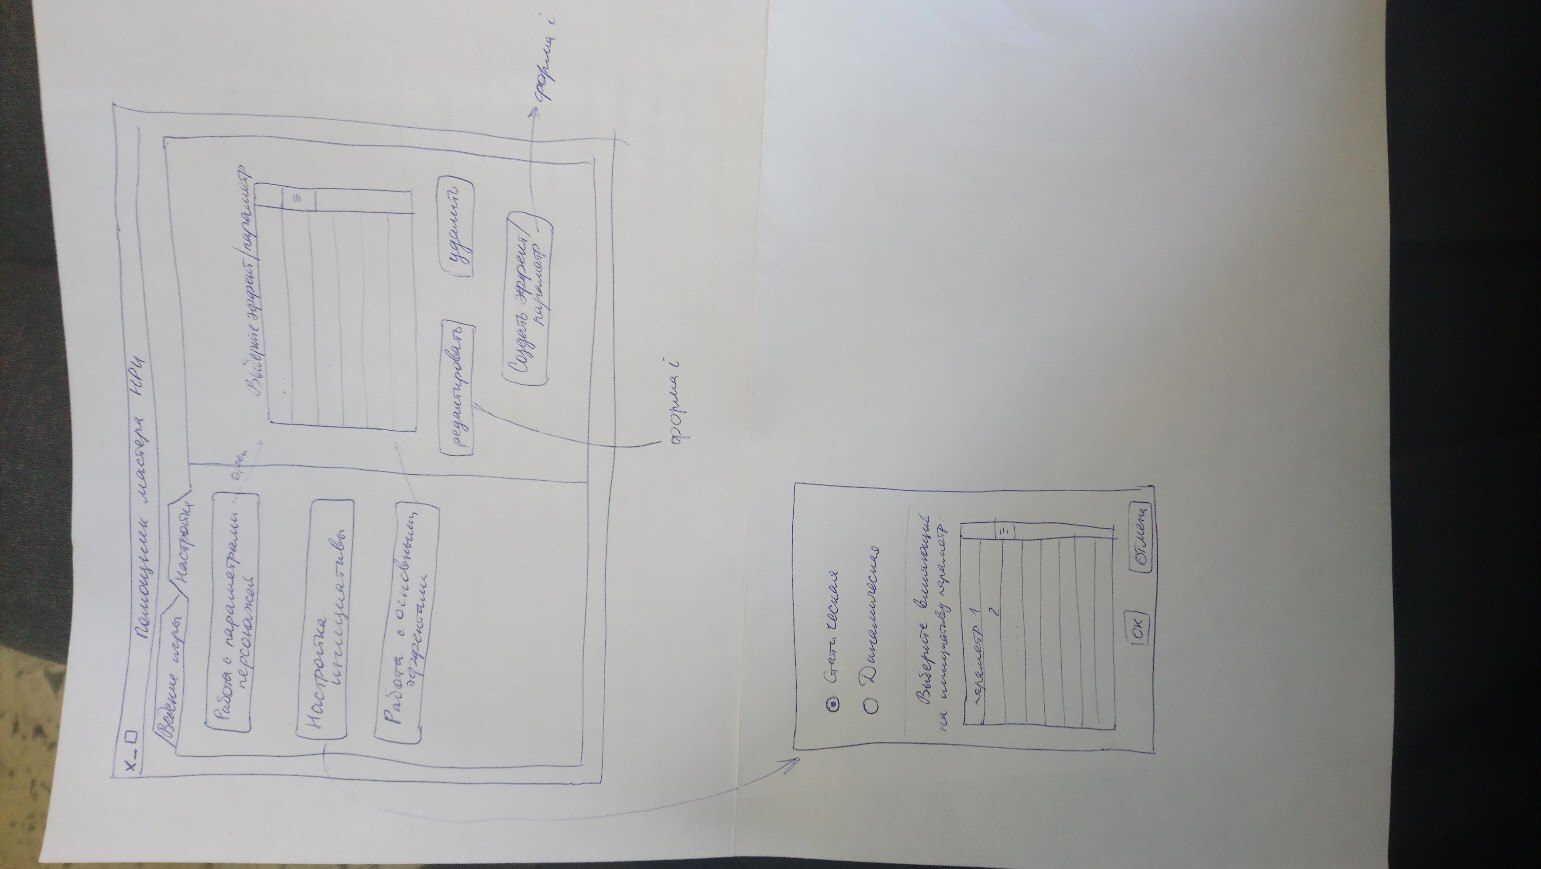 x _ □
Помощник мастера НРИ
Ведение игры
Настройка
Работа с параметрами
персонажей
Выберите эффект/параметр
...
Настройка
инициативы
Работа с основными
эффектами
редактировать
удалить
Создать эффект/
параметр
форма i
форма i
Статическая
Динамическая
Выберите влияющий
на инициативу параметр:
параметр 1
2
...
ОК
Отмена